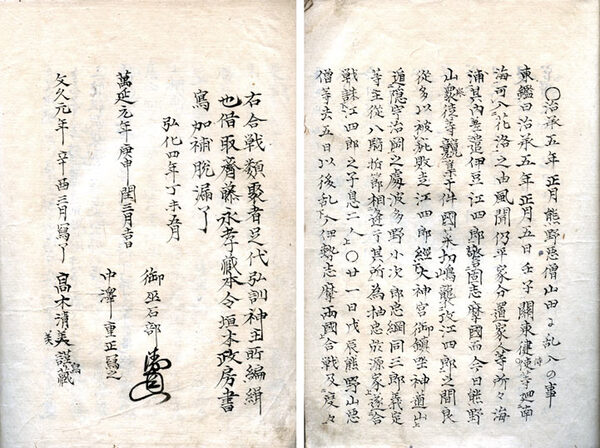 〇治承五年正月熊野悪僧山田に乱入の事
東鑑曰治承五年正月五日壬子關東健士等廻南
海可入花洛之由風聞仍平家分置家人等所々海
浦其内差遣伊豆江四郎警固志摩國而今日熊野
山衆徒等競集于件國菜切嶋襲攻江四郎之間良
從多以被疵敗走江四郎經大神宮御鎮坐神道山
遁隠宇治岡之處波多野小次郎忠綱同三郎義定
等主從八騎折節相逢于其所為抽忠於源家遂合
戦誅江四郎之子息二人〇廿一日戊辰熊野山悪
僧等去五日以後乱入伊勢志摩両國合戦及度々
右合戦類聚者足代弘訓神主所編緝
也借取齋藤永孝蔵本令垣本政房書
寫加補脱漏了
弘化四年丁未五月
御巫石部
萬延元年庚申閏三月吉日
中澤重正寫之
文久元年辛酉三月寫了 高木清美謹蔵